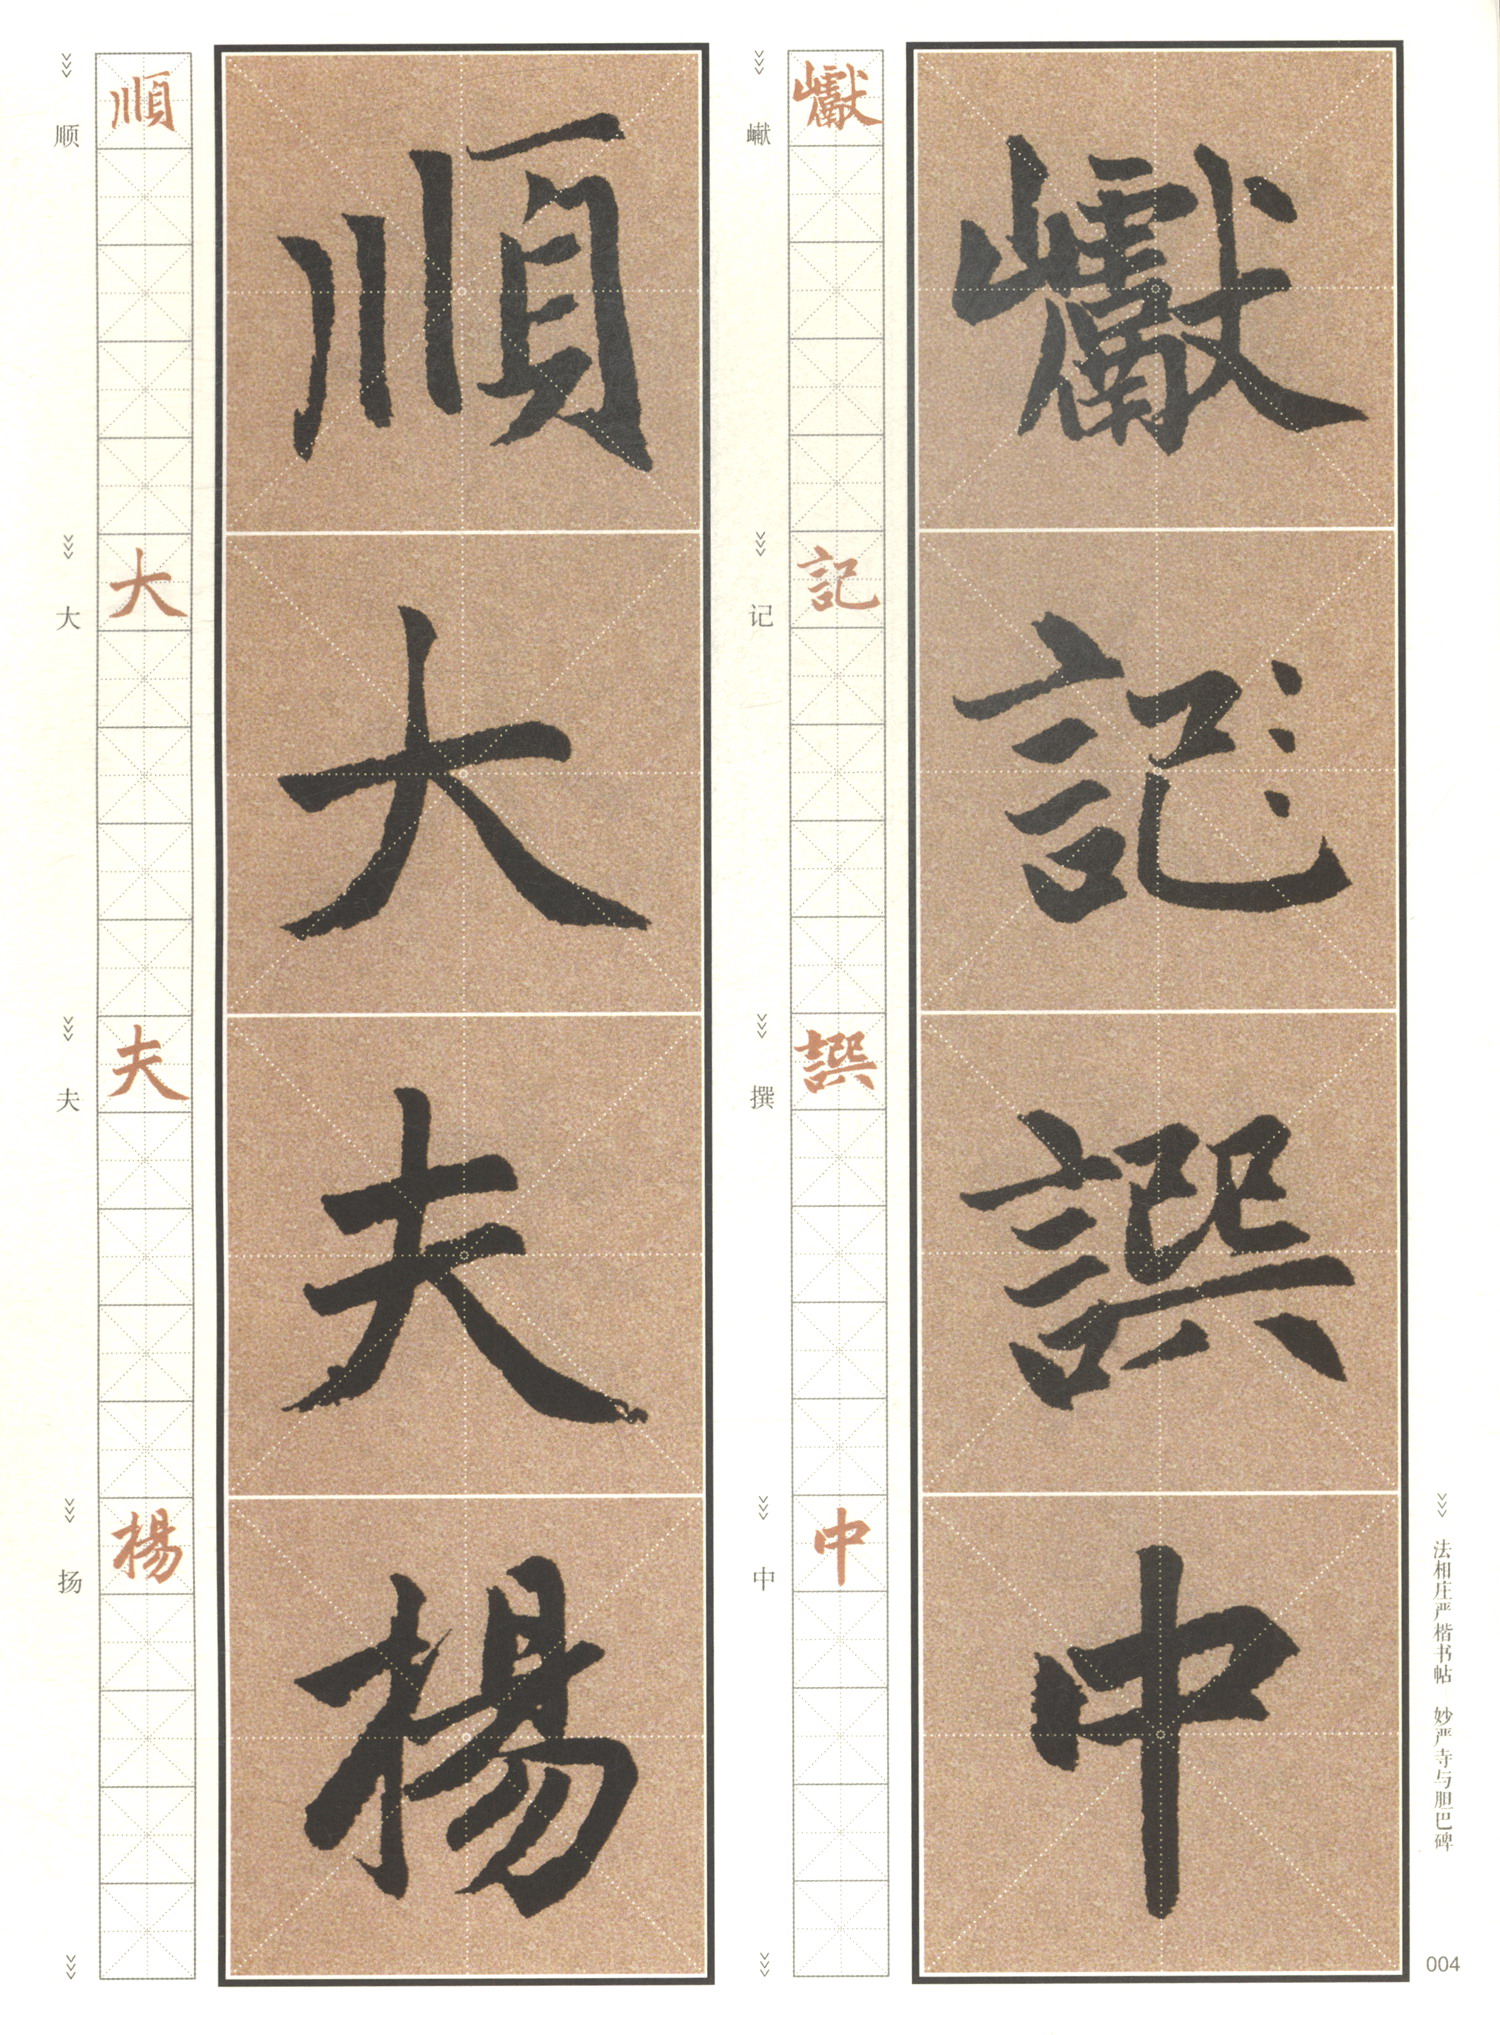 巘記譔中
巘記譔中
𪩘 记 撰 中
順大夫楊
順大夫楊
顺 大 夫 扬
法相庄严楷书帖 妙严寺与胆巴碑
004